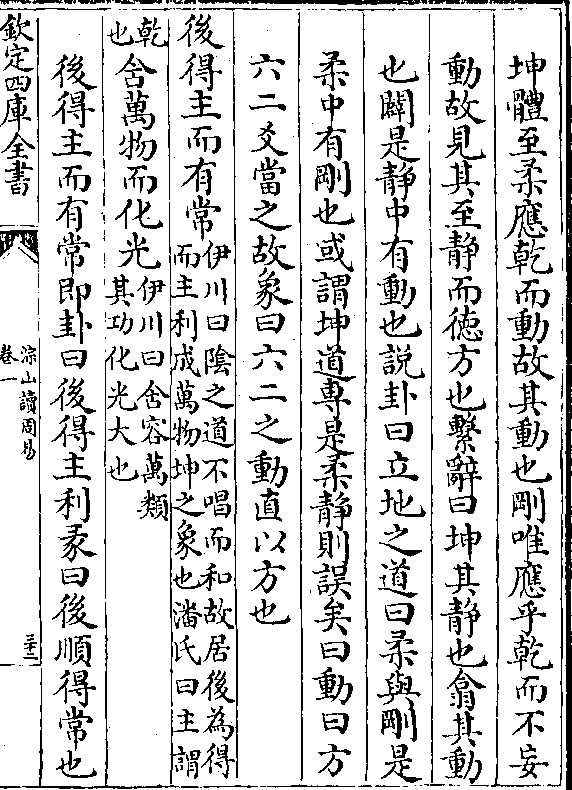 坤體至柔應乾而動故其動也剛唯應乎乾而不妄
動故見其至静而徳方也繫辭曰坤其静也翕其動
也闢是静中有動也説卦曰立地之道曰柔與剛是
柔中有剛也或謂坤道專是柔静則誤矣曰動曰方
六二爻當之故象曰六二之動直以方也
後得主而有常伊川曰隂之道不唱而和故居後為得
而主利成萬物坤之象也潘氏曰主謂
乾
也含萬物而化光伊川曰含容萬類
其功化光大也
後得主而有常即卦曰後得主利彖曰後順得常也
欽定四庫全書
淙山讀周易
卷一
三十二